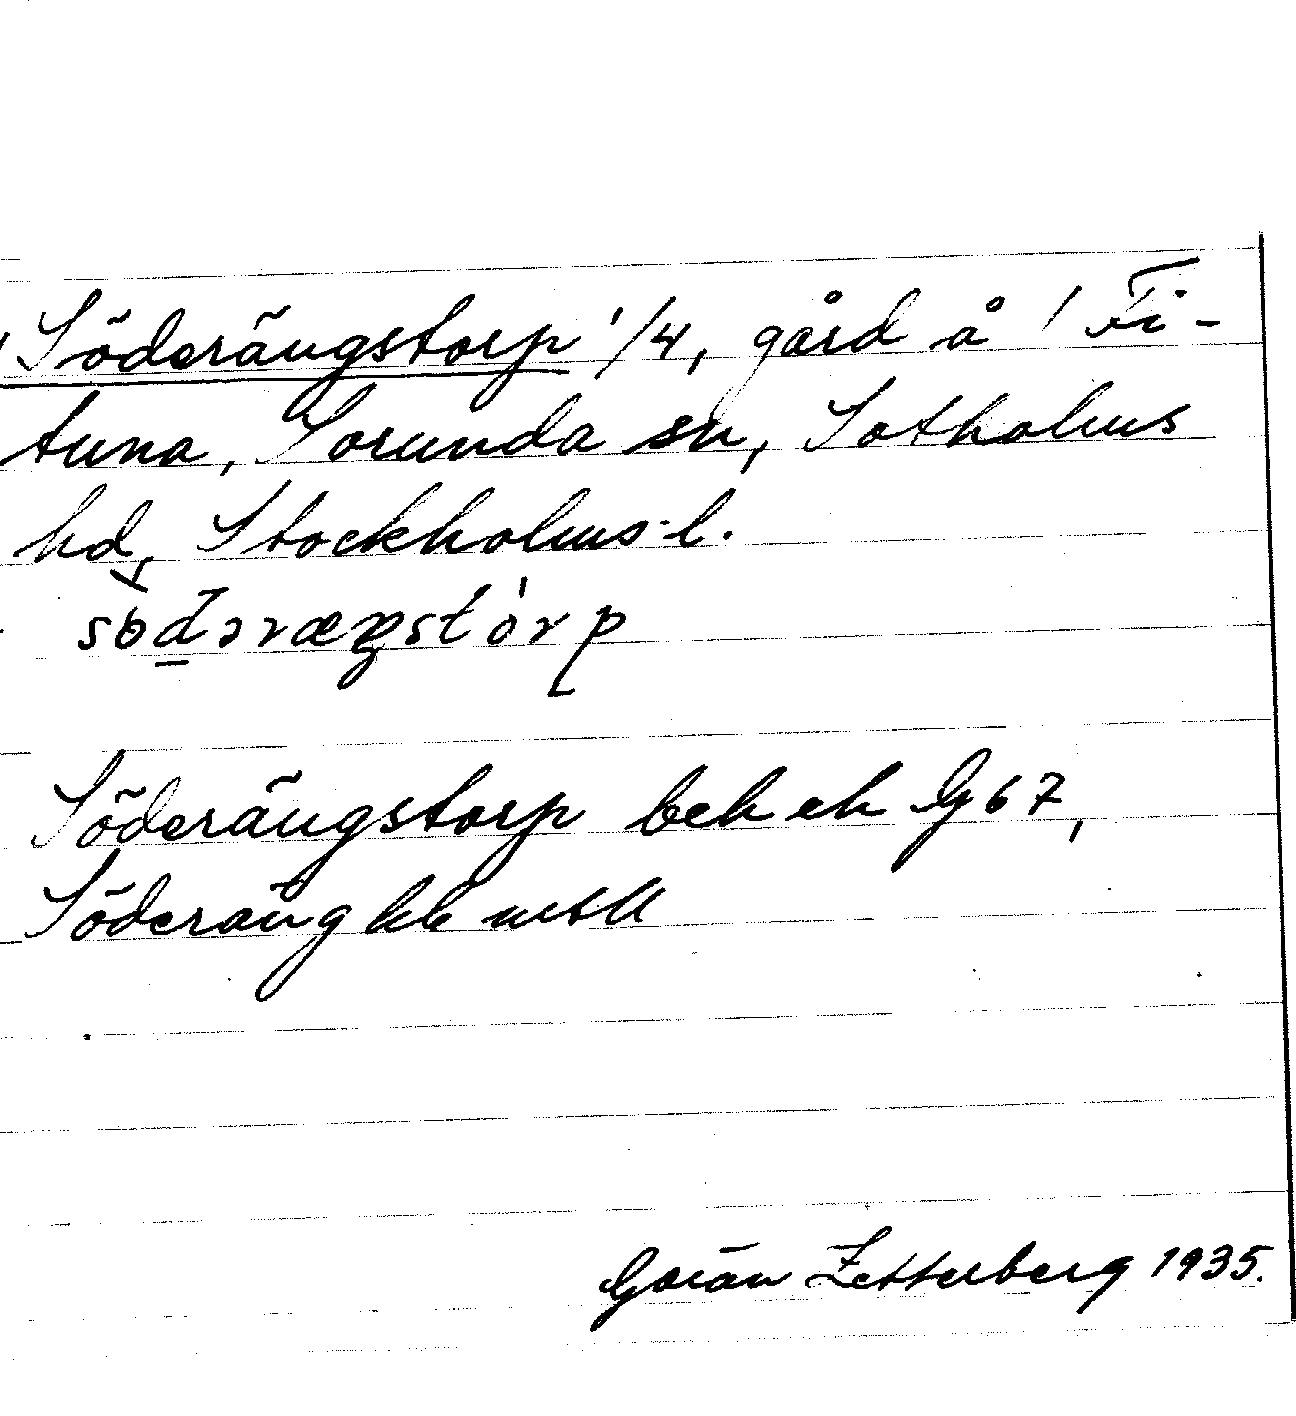 Söderängstorp 1/4, gård å / Fi-
tuna, Sorunda sn, Sotholms
hd, Stockholms l.
södəræŋstòrp
Söderängstorp beb ek G 67,
Söderäng kb mtll
Göran Zetterberg 1935.